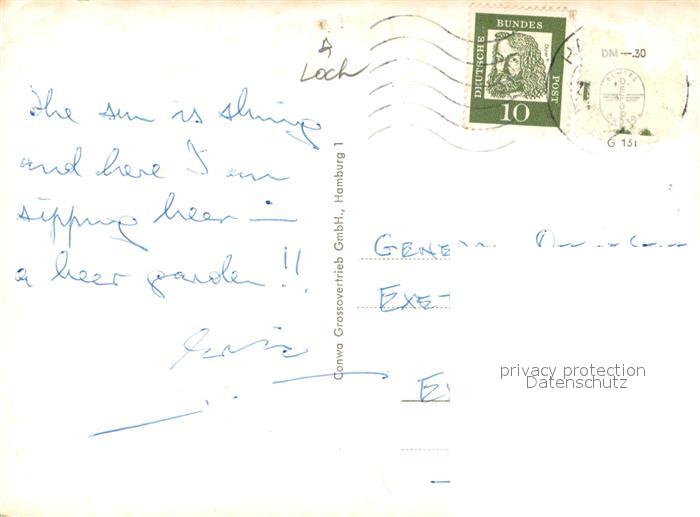 Loch
DEUTSCHE BUNDES POST
Dürer
10
DM —.30
G 131
The sun is shining
and here I am
sipping beer in
a beer garden !!
Eric
Conwa Grossovertrieb GmbH., Hamburg 1
GENE
EXE
E
privacy protection
Datenschutz